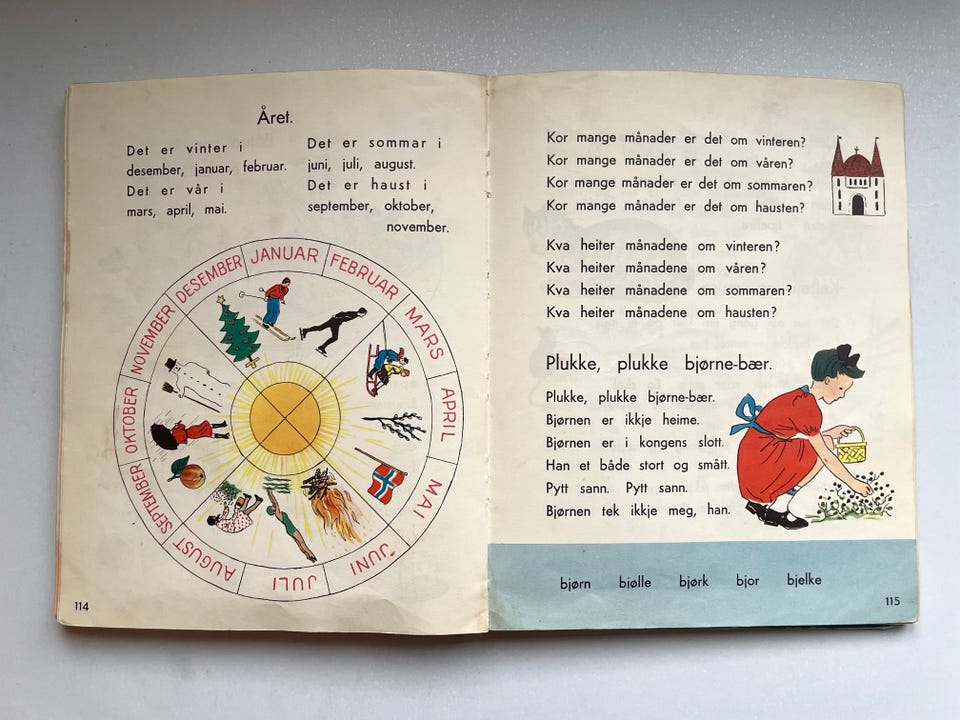 Året.
Det er vinter i
desember, januar, februar.
Det er vår i
mars, april, mai.
Det er sommar i
juni, juli, august.
Det er haust i
september, oktober,
november.
JANUAR
FEBRUAR
MARS
APRIL
MAI
JUNI
JULI
AUGUST
SEPTEMBER
OKTOBER
NOVEMBER
DESEMBER
114
Kor mange månader er det om vinteren?
Kor mange månader er det om våren?
Kor mange månader er det om sommaren?
Kor mange månader er det om hausten?
Kva heiter månadene om vinteren?
Kva heiter månadene om våren?
Kva heiter månadene om sommaren?
Kva heiter månadene om hausten?
Plukke, plukke bjørne-bær.
Plukke, plukke bjørne-bær.
Bjørnen er ikkje heime.
Bjørnen er i kongens slott.
Han et både stort og smått.
Pytt sann. Pytt sann.
Bjørnen tek ikkje meg, han.
bjørn bjølle bjørk bjor bjelke
115